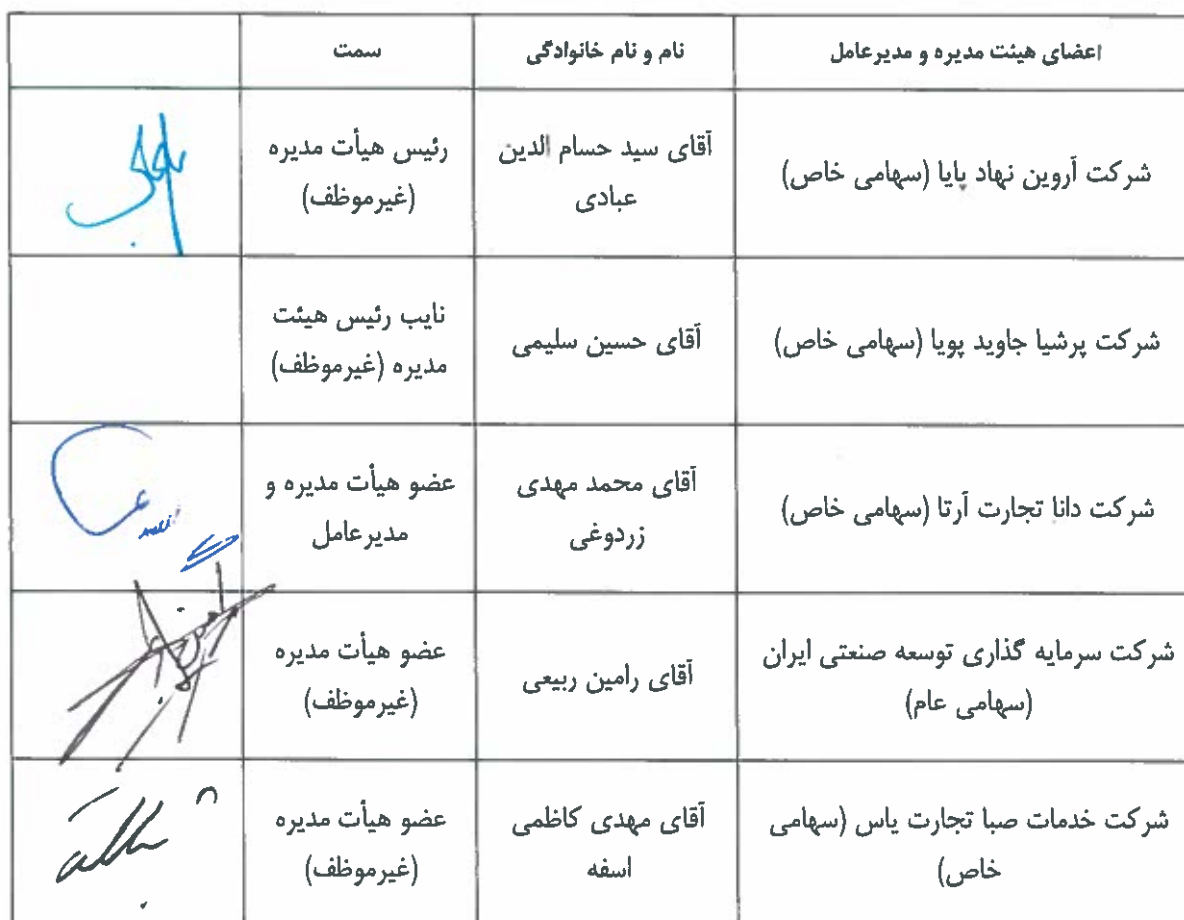 اعضای هیئت مدیره و مدیرعامل
نام و نام خانوادگی
سمت
شرکت آروین نهاد پایا (سهامی خاص)
آقای سید حسام الدین
عبادی
رئیس هیأت مدیره
(غیرموظف)
شرکت پرشیا جاوید پویا (سهامی خاص)
آقای حسین سلیمی
نایب رئیس هیئت
مدیره (غیرموظف)
شرکت دانا تجارت آرتا (سهامی خاص)
آقای محمد مهدی
زردوغی
عضو هیأت مدیره و
مدیرعامل
شرکت سرمایه گذاری توسعه صنعتی ایران
(سهامی عام)
آقای رامین ربیعی
عضو هیأت مدیره
(غیرموظف)
شرکت خدمات صبا تجارت یاس (سهامی
خاص)
آقای مهدی کاظمی
اسفه
عضو هیأت مدیره
(غیرموظف)